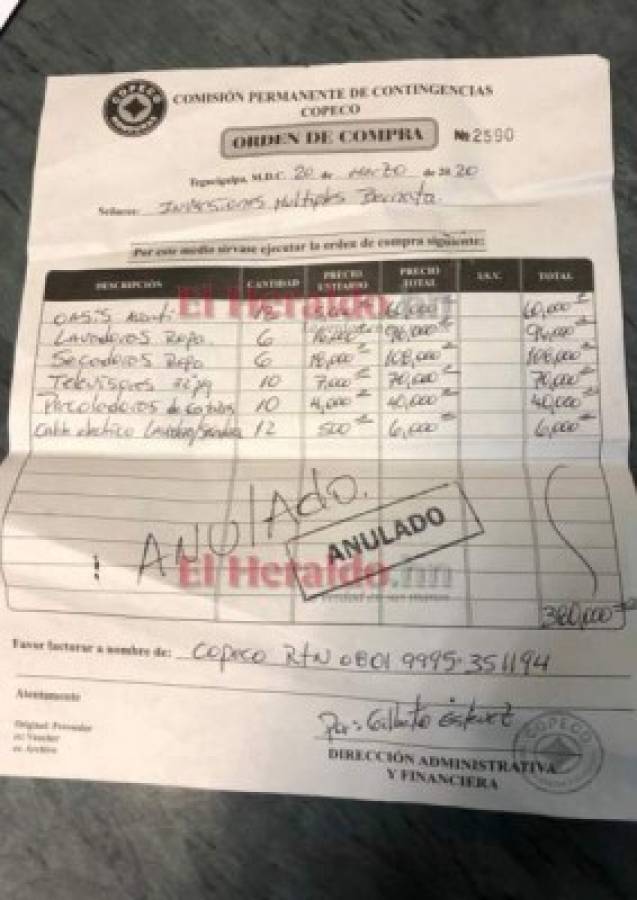 COPECO
HONDURAS
COMISIÓN PERMANENTE DE CONTINGENCIAS
COPECO
ORDEN DE COMPRA
No 2590
Tegucigalpa, M.D.C. 20 de Marzo de 2020
Señores: Inversiones Multiples
Por este medio sírvase ejecutar la orden de compra siguiente:
DESCRIPCIÓN CANTIDAD PRECIO UNITARIO PRECIO TOTAL I.S.V. TOTAL
OASIS 12 60,000 60,000
El Heraldo.hn
Lavadoras Ropa 6 16,000 96,000 96,000
Secadoras Ropa 6 18,000 108,000 108,000
Televisores 10 7,000 70,000 70,000
Percoladoras de 10 4,000 40,000 40,000
Cable electrico 12 500 6,000 6,000
ANULADO.
ANULADO
El Heraldo.hn
La verdad en sus manos
380,000
Favor facturar a nombre de: Copeco RTN 0801 9995-351194
Atentamente
Original: Proveedor
cc: Voucher
cc. Archivo
Por: Gilberto
DIRECCIÓN ADMINISTRATIVA
Y FINANCIERA
COPECO